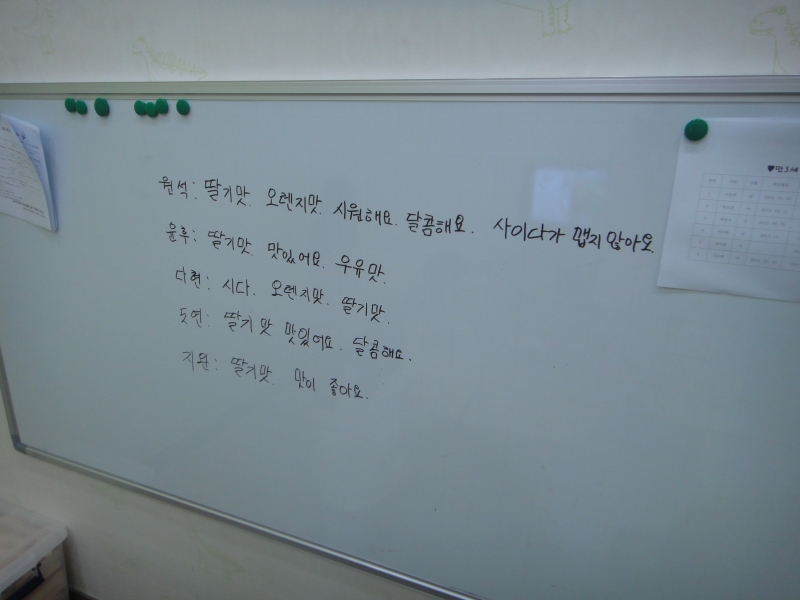 원석: 딸기맛. 오렌지맛. 시원해요. 달콤해요. 사이다가 맵지 않아요
윤후: 딸기맛. 맛있어요. 우유맛.
다현: 시다. 오렌지맛. 딸기맛.
도연: 딸기맛 맛있어요. 달콤해요.
지원: 딸기맛. 맛이 좋아요.
♥만3세